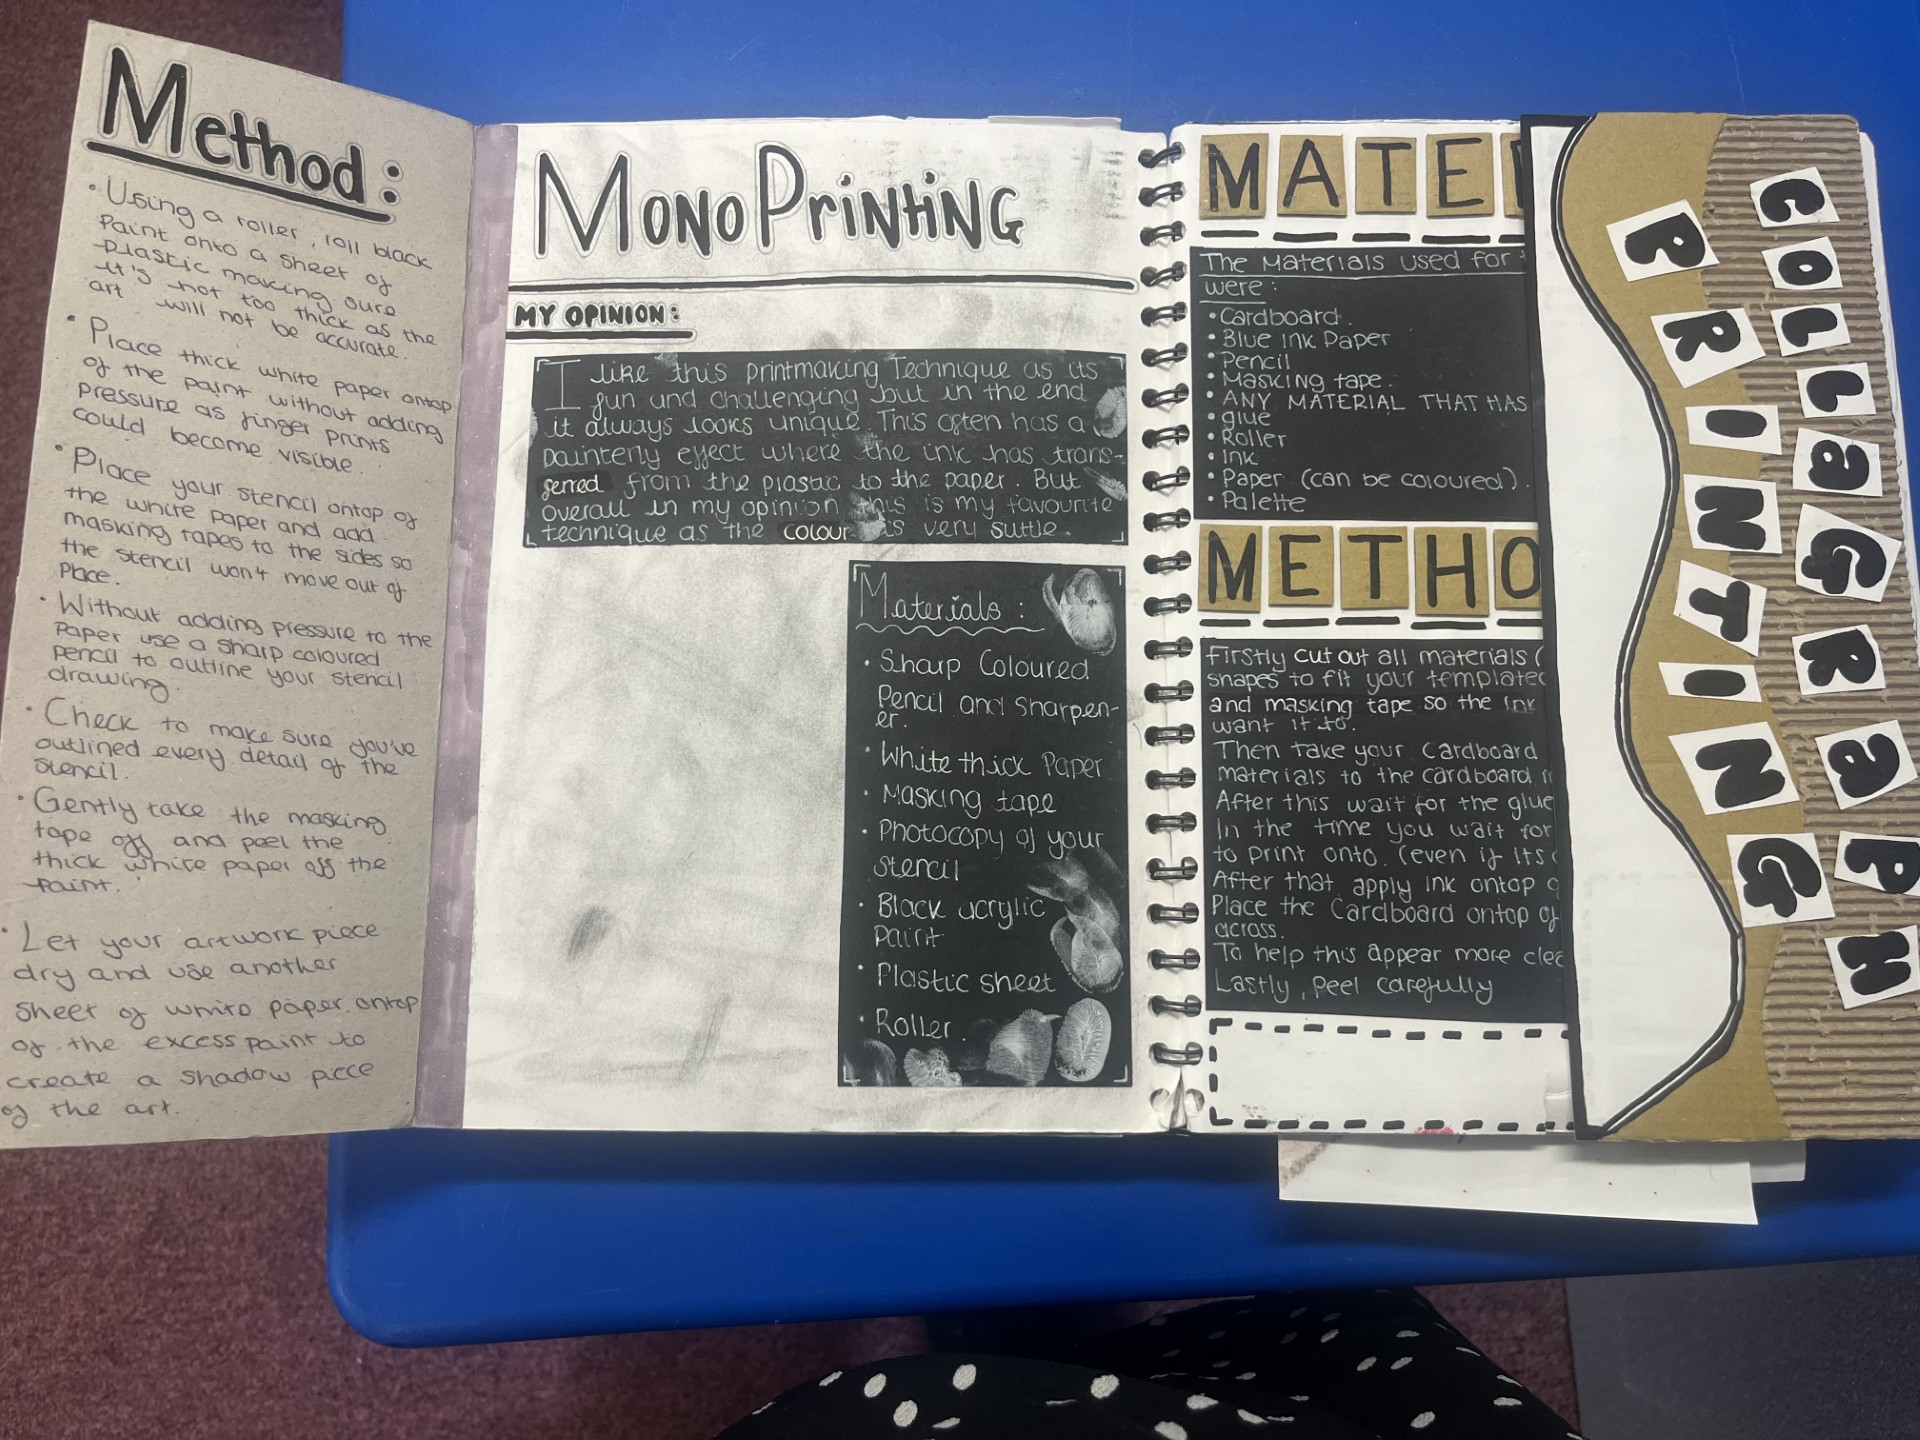 Method:
• Using a roller, roll black
Paint onto a sheet of
Plastic making sure
it's not too thick as the
art will not be accurate.
• Place thick white paper ontop
of the paint without adding
pressure as finger prints
could become visible.
• Place your stencil ontop of
the white paper and add
masking tapes to the sides so
the stencil won't move out of
Place.
• Without adding pressure to the
Paper use a sharp coloured
pencil to outline your stencil
drawing.
• Check to make sure you've
outlined every detail of the
stencil.
• Gently take the masking
tape off and peel the
thick white paper off the
paint.
• Let your artwork piece
dry and use another
sheet of white paper ontop
of the excess paint to
create a shadow piece
of the art.
MONO PRINTING
MY OPINION:
I like this printmaking Technique as its
fun and challenging but in the end
it always looks unique. This often has a
painterly effect where the ink has trans-
ferred from the plastic to the paper. But
overall in my opinion this is my favourite
technique as the colour is very suttle.
Materials:
• Sharp Coloured
Pencil and Sharpen-
er.
• White thick Paper
• Masking tape
• Photocopy of your
stencil
• Black acrylic
paint
• Plastic sheet
• Roller.
MATE
The Materials used for
were:
• Cardboard.
• Blue ink Paper
• Pencil
• Masking tape.
• ANY MATERIAL THAT HAS
• glue
• Roller
• Ink
• Paper (can be coloured).
• Palette
METHO
Firstly cut out all materials (
shapes to fit your template
and masking tape so the ink
want it to.
Then take your Cardboard
materials to the cardboard
After this wait for the glue
In the time you wait for
to print onto. (even if its
After that apply ink ontop
Place the Cardboard ontop of
across.
To help this appear more
Lastly, Peel carefully
COLLaGRaPH
PRINTING